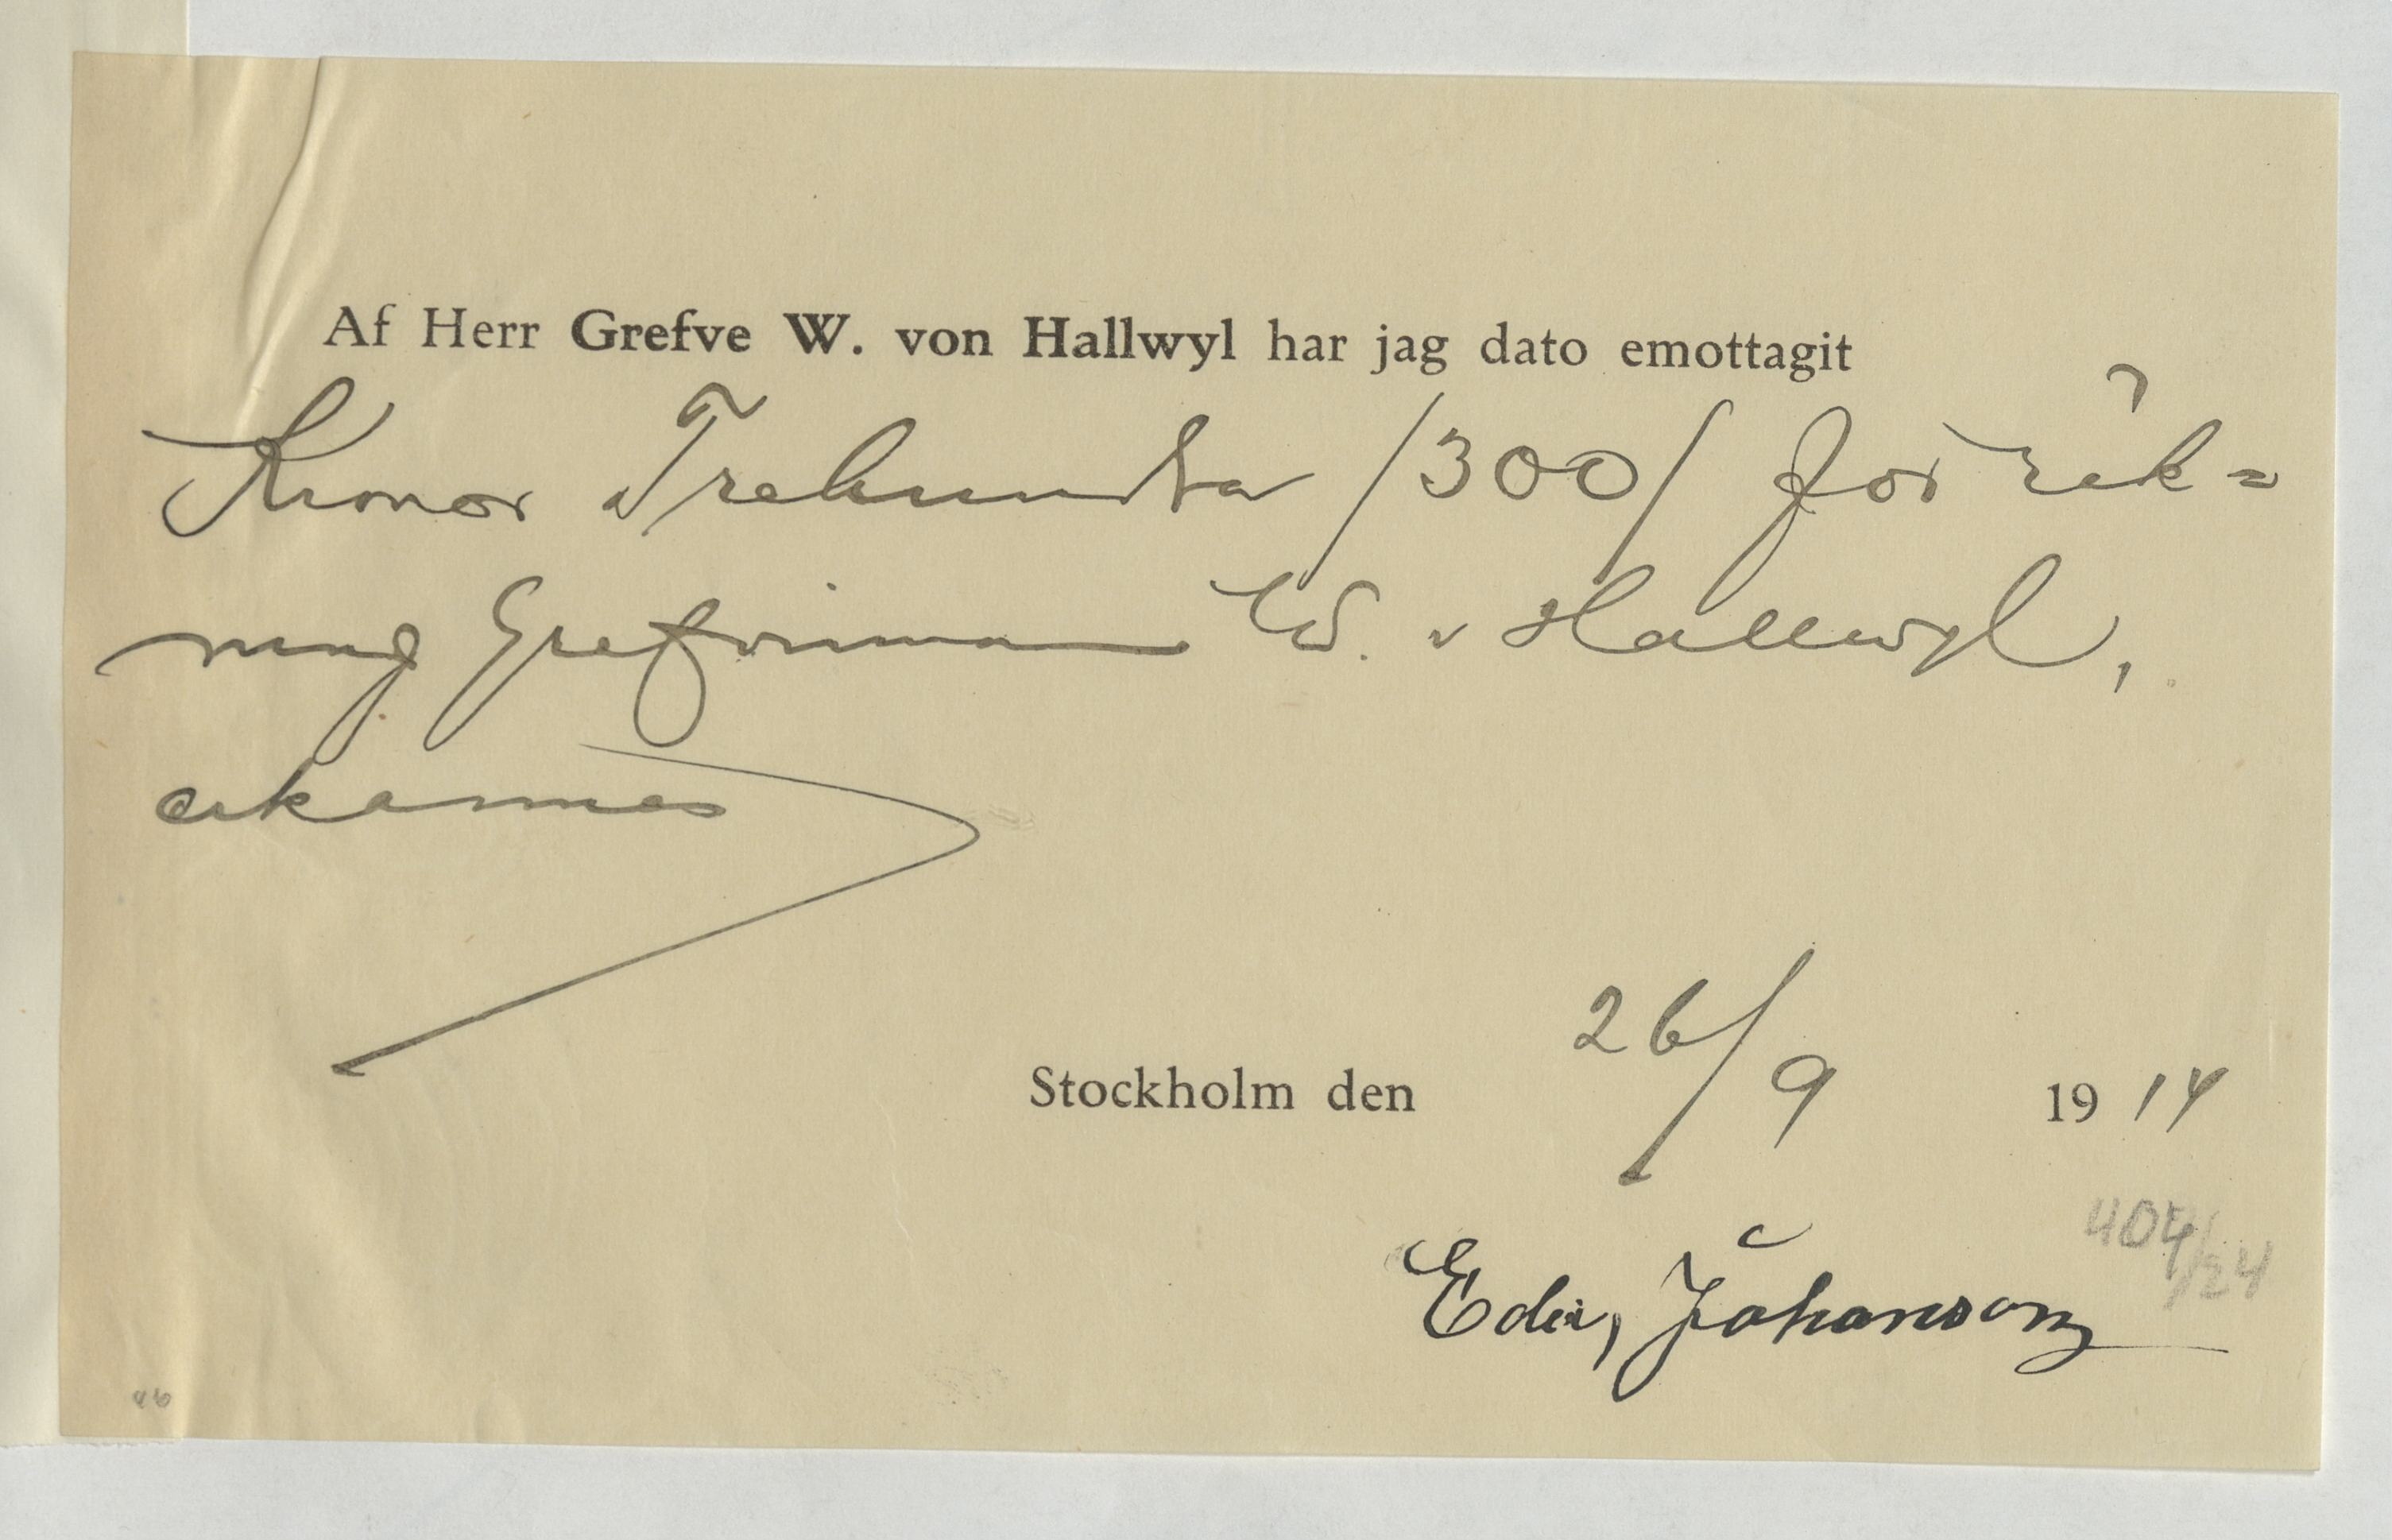 Af Herr Grefve W. von Hallwyl har jag dato emottagit
Kronor Trehundra /300/ för räk=
ning Grefvinnan W. v Hallwyl,
erkännes
Stockholm den 26/9 1914
Johanson